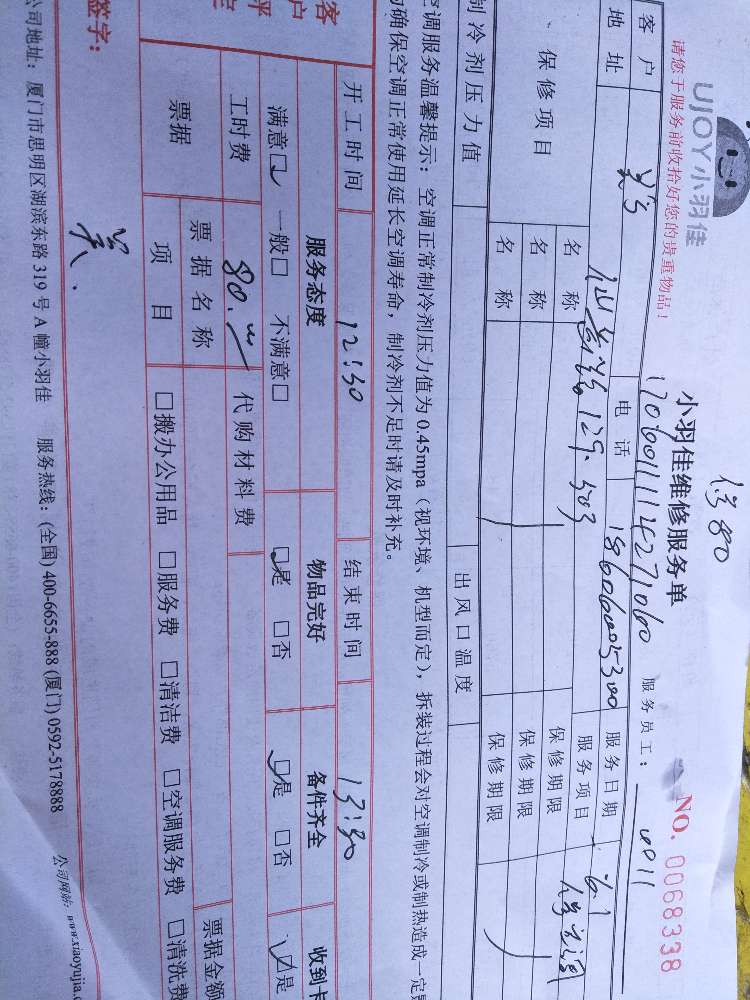 UJOY小羽佳
请您于服务前收拾好您的贵重物品!
修80
小羽佳维修服务单
NO. 0068338
服务员工:
客户
电话 18606005300 服务日期 6.1
地址 129.503 服务项目 修空调
保修项目 名称 保修期限
名称 保修期限
名称 保修期限
制冷剂压力值 出风口温度
空调服务温馨提示: 空调正常制冷剂压力值为 0.45mpa(视环境、机型而定),拆装过程会对空调制冷或制热造成一定
确保空调正常使用延长空调寿命,制冷剂不足时请及时补充。
开工时间 12:30 结束时间 13:30
客户评
服务态度 物品完好 备件齐全 收到卡
满意☑ 一般□ 不满意□ ☑是 □否 ☑是 □否 ☑是
工时费 80.00 代购材料费
票据 票据名称 票据金额
项目 □搬办公用品 □服务费 □清洁费 □空调服务费 □清洗费
签字:
公司地址: 厦门市思明区湖滨东路 319 号 A 幢小羽佳 服务热线: (全国) 400-6655-888 (厦门) 0592-5178888 公司网站: www.xiaoyujia.